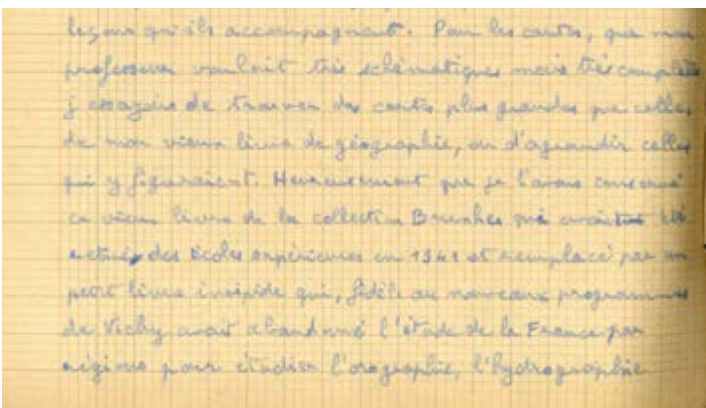 leçons qu'ils accompagnent. Pour les cartes, que mon
professeur voulait très schématiques mais très complètes
j'essayais de trouver des cartes plus grandes que celles
de mon vieux livre de géographie, ou d'agrandir celles
qui y figuraient. Heureusement que je l'avais conservé
ce vieux livre de la collection Brunhes qui avait été
retiré des écoles supérieures en 1941 et remplacé par un
petit livre insipide qui, fidèle au nouveau programme
de Vichy avait abandonné l'étude de la France par
régions pour étudier l'orographie, l'hydrographie